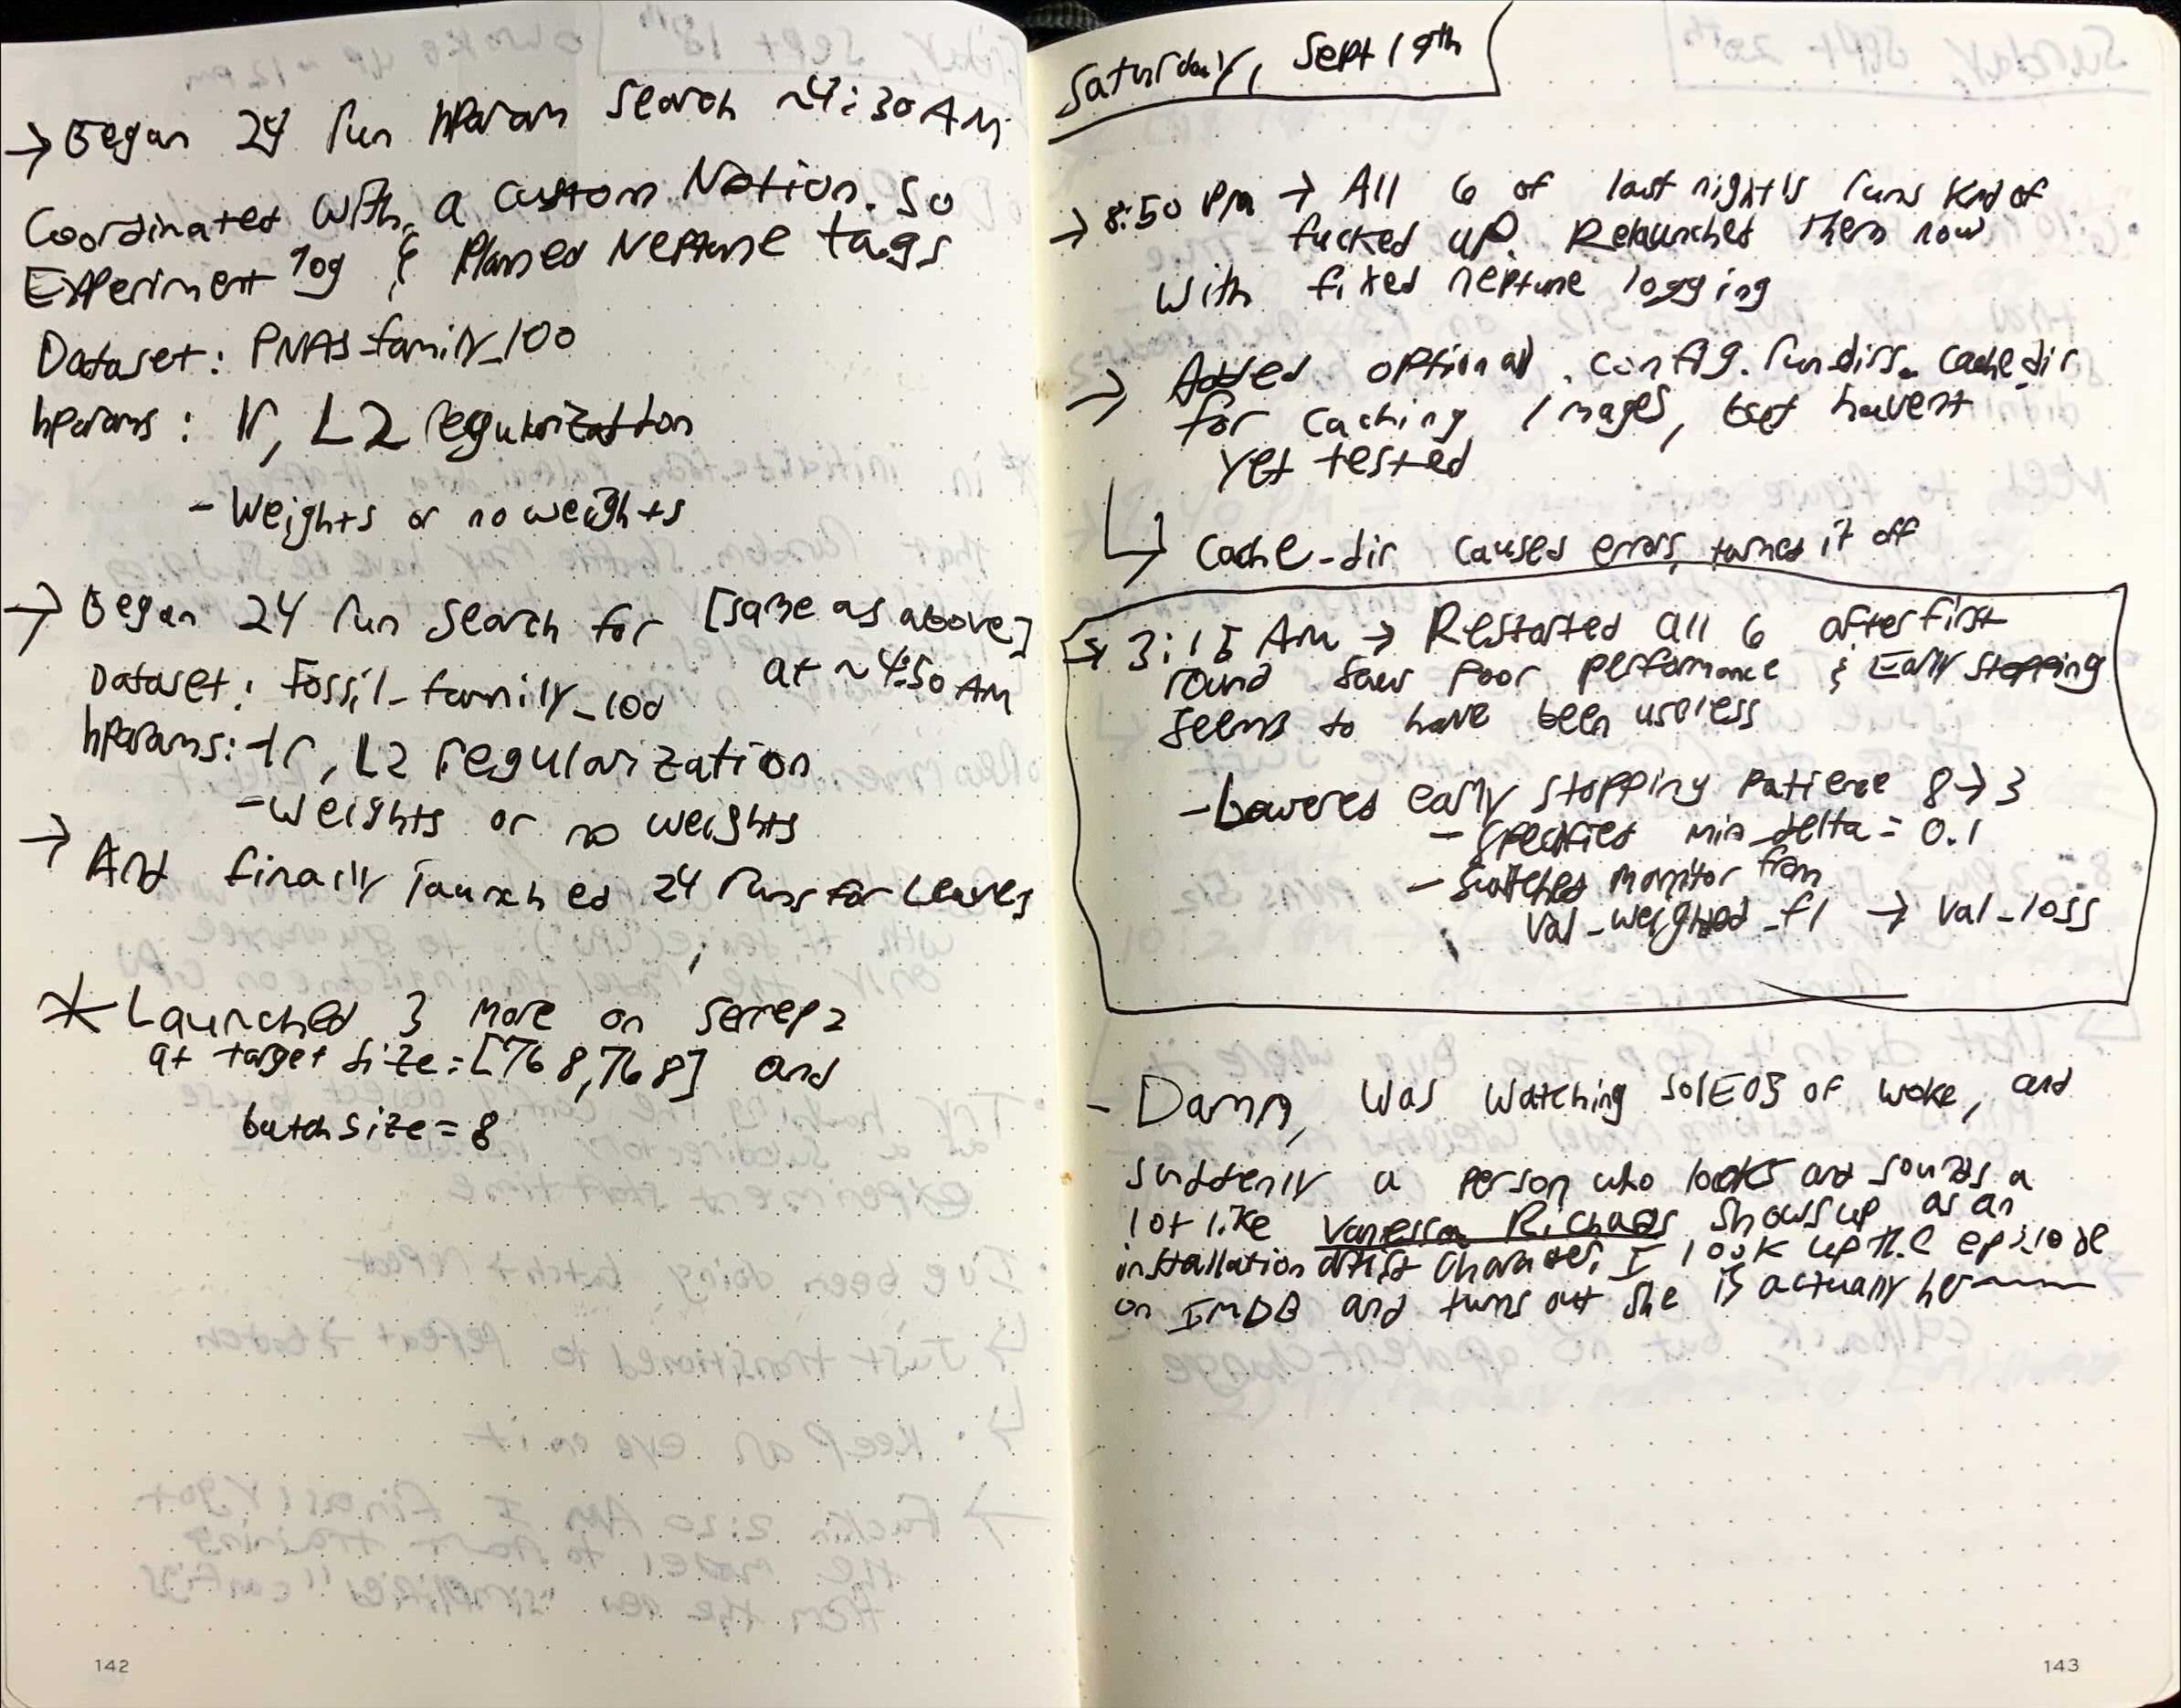 → Began 24 run hparam search ~4:30 AM
Coordinated with a custom Notion.so
Experiment log & Planned Neptune tags
Dataset: PNAS_family_100
hparams: lr, L2 regularization
- Weights or no weights
→ Began 24 run search for [same as above]
at ~4:50 AM
Dataset: Fossil_family_100
hparams: lr, L2 regularization
- Weights or no weights
→ And finally launched 24 runs for Leaves
* Launched 3 more on serrep2
at target size = [768,768] and
batch size = 8
142
Saturday, Sept 19th
→ 8:50 PM → All 6 of last night's runs kind of
fucked up. Relaunched them now
with fixed neptune logging
→ Added optional config.run_dirs.cache_dir
for caching images, but havent
yet tested
↳ Cache_dir caused errors, turned it off
→ 3:15 AM → Restarted all 6 after first
round saw poor performance & Early stopping
seems to have been useless
- Lowered early stopping patience 8→3
- Specified min_delta = 0.1
- Switched monitor from
val_weighted_f1 → val_loss
- Damn, was watching S01E03 of woke, and
suddenly a person who looks and sounds a
lot like Vanessa Richards shows up as an
installation artist character, I look up the episode
on IMDB and turns out she is actually her
143